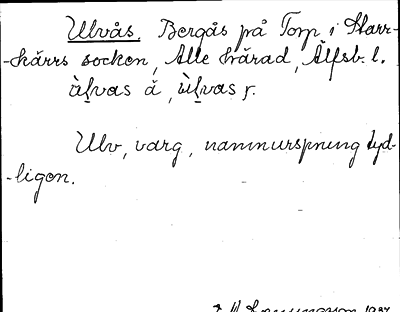 Ulvås, Bergås på Torp i Starr-
-kärrs socken, Ale härad, Älfsb. l.
ùlvas å, ùlvas r.
Ulv, varg, namnursprung tyd-
-ligen.